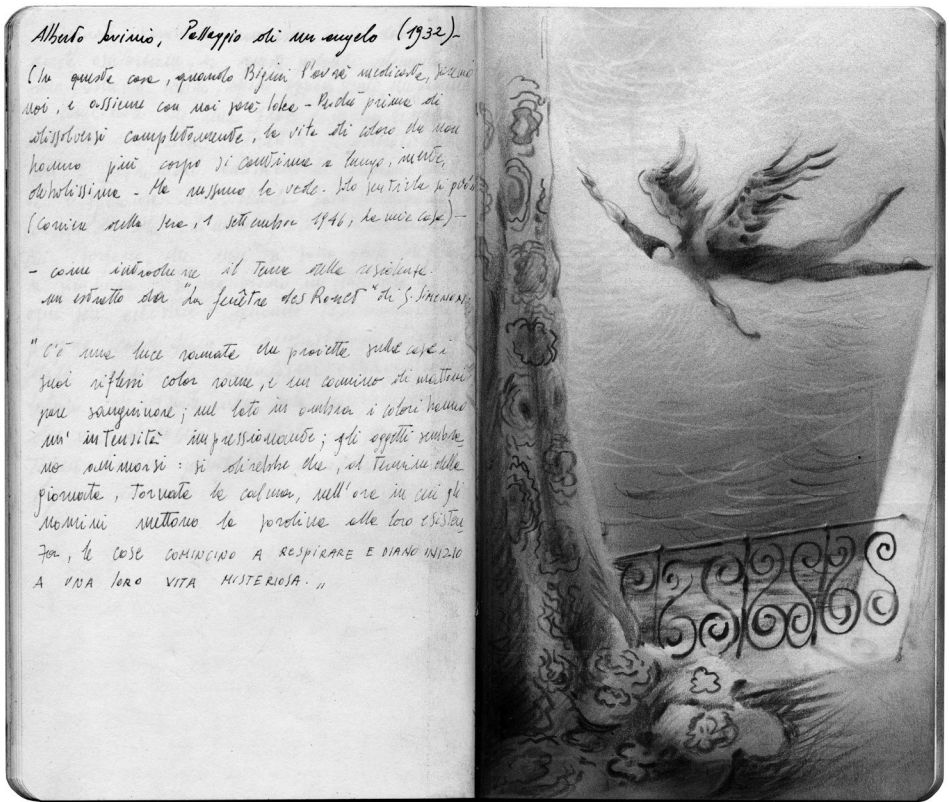 Alberto Savinio, Passaggio di un angelo (1932)-
(In questa casa, quando Bigini l'avrà medicata, saremo
noi, e assieme con noi sarà - Perché prima di
dissolversi completamente, la vita di coloro che non
hanno più corpo si continua a lungo, inerte,
debolissima - Ma nessuno la vede. Solo sentirla si può
(Corriere della Sera, 1 settembre 1946, La mia casa)-
- come introduzione il tema della
un estratto da "La fenêtre des Rouet" di G. Simenon
"C'è una luce ramata che proietta sulle case i
suoi riflessi color rame, e un camino di mattoni
pare sanguinare; nel lato in ombra i colori hanno
un' intensità impressionante; gli oggetti sembra
no animarsi: si direbbe che, al termine della
giornata, tornata la calma, nell'ora in cui gli
uomini mettono la sordina alla loro esisten
za, le cose COMINCINO A RESPIRARE E DIANO INIZIO
A UNA LORO VITA MISTERIOSA. "